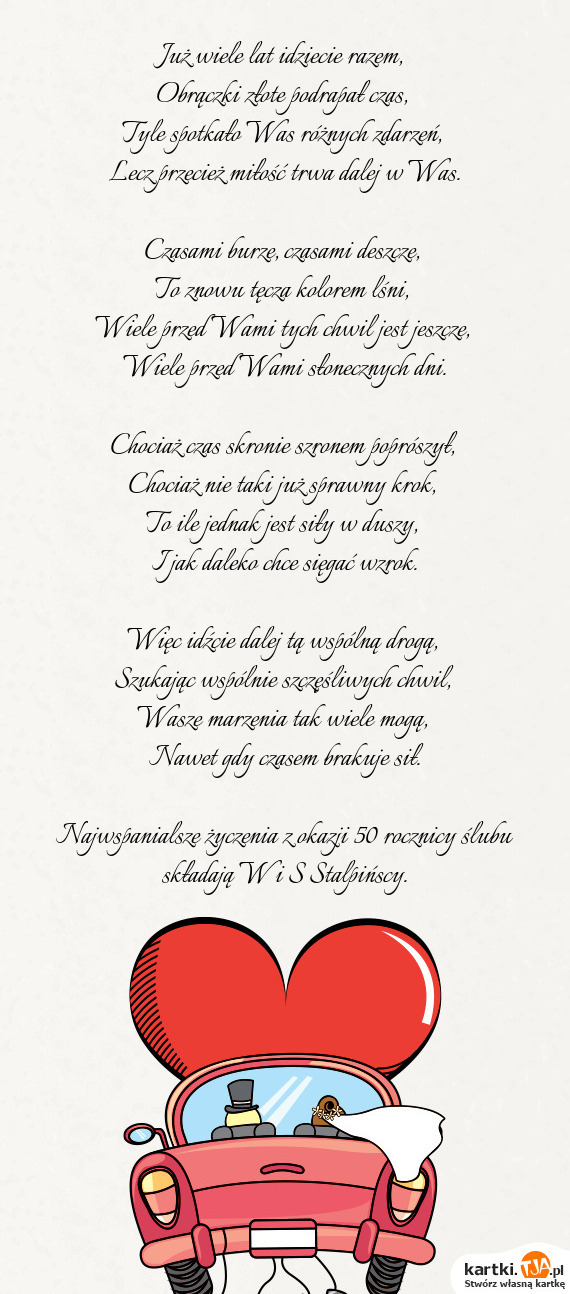 Już wiele lat idziecie razem,
Obrączki złote podrapał czas,
Tyle spotkało Was różnych zdarzeń,
Lecz przecież miłość trwa dalej w Was.

Czasami burze, czasami deszcze,
To znowu tęcza kolorem lśni,
Wiele przed Wami tych chwil jest jeszcze,
Wiele przed Wami słonecznych dni.

Chociaż czas skronie szronem poprószył,
Chociaż nie taki już sprawny krok,
To ile jednak jest siły w duszy,
I jak daleko chce sięgać wzrok.

Więc idźcie dalej tą wspólną drogą,
Szukając wspólnie szczęśliwych chwil,
Wasze marzenia tak wiele mogą,
Nawet gdy czasem brakuje sił.

Najwspanialsze życzenia z okazji 50 rocznicy ślubu
składają W i S Stalpińscy.

kartki.TJA.pl
Stwórz własną kartkę